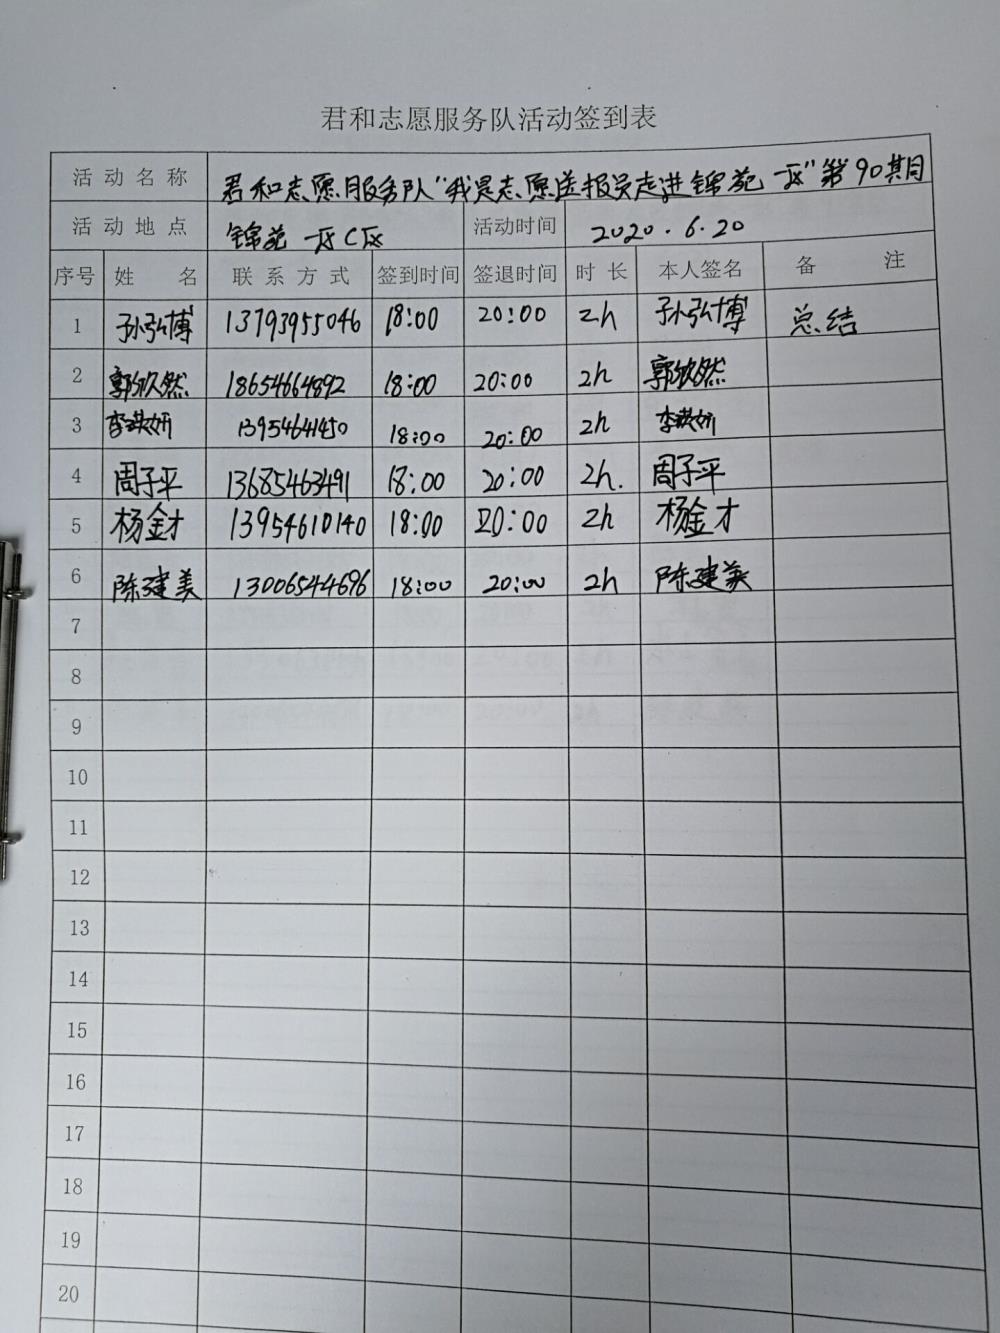 君和志愿服务队活动签到表
活动名称 君和志愿服务队"我是志愿送报员走进锦苑一区"第90期
活动地点 锦苑一区C区 活动时间 2020.6.20
序号 姓名 联系方式 签到时间 签退时间 时长 本人签名 备注
1 孙弘博 13793955046 18:00 20:00 2h 孙弘博 总结
2 郭欣然 18654664892 18:00 20:00 2h 郭欣然
3 李洪妍 13954641450 18:00 20:00 2h 李洪妍
4 周子平 13685463491 18:00 20:00 2h. 周子平
5 杨金才 13954610140 18:00 20:00 2h 杨金才
6 陈建美 13006544696 18:00 20:00 2h 陈建美
7
8
9
10
11
12
13
14
15
16
17
18
19
20